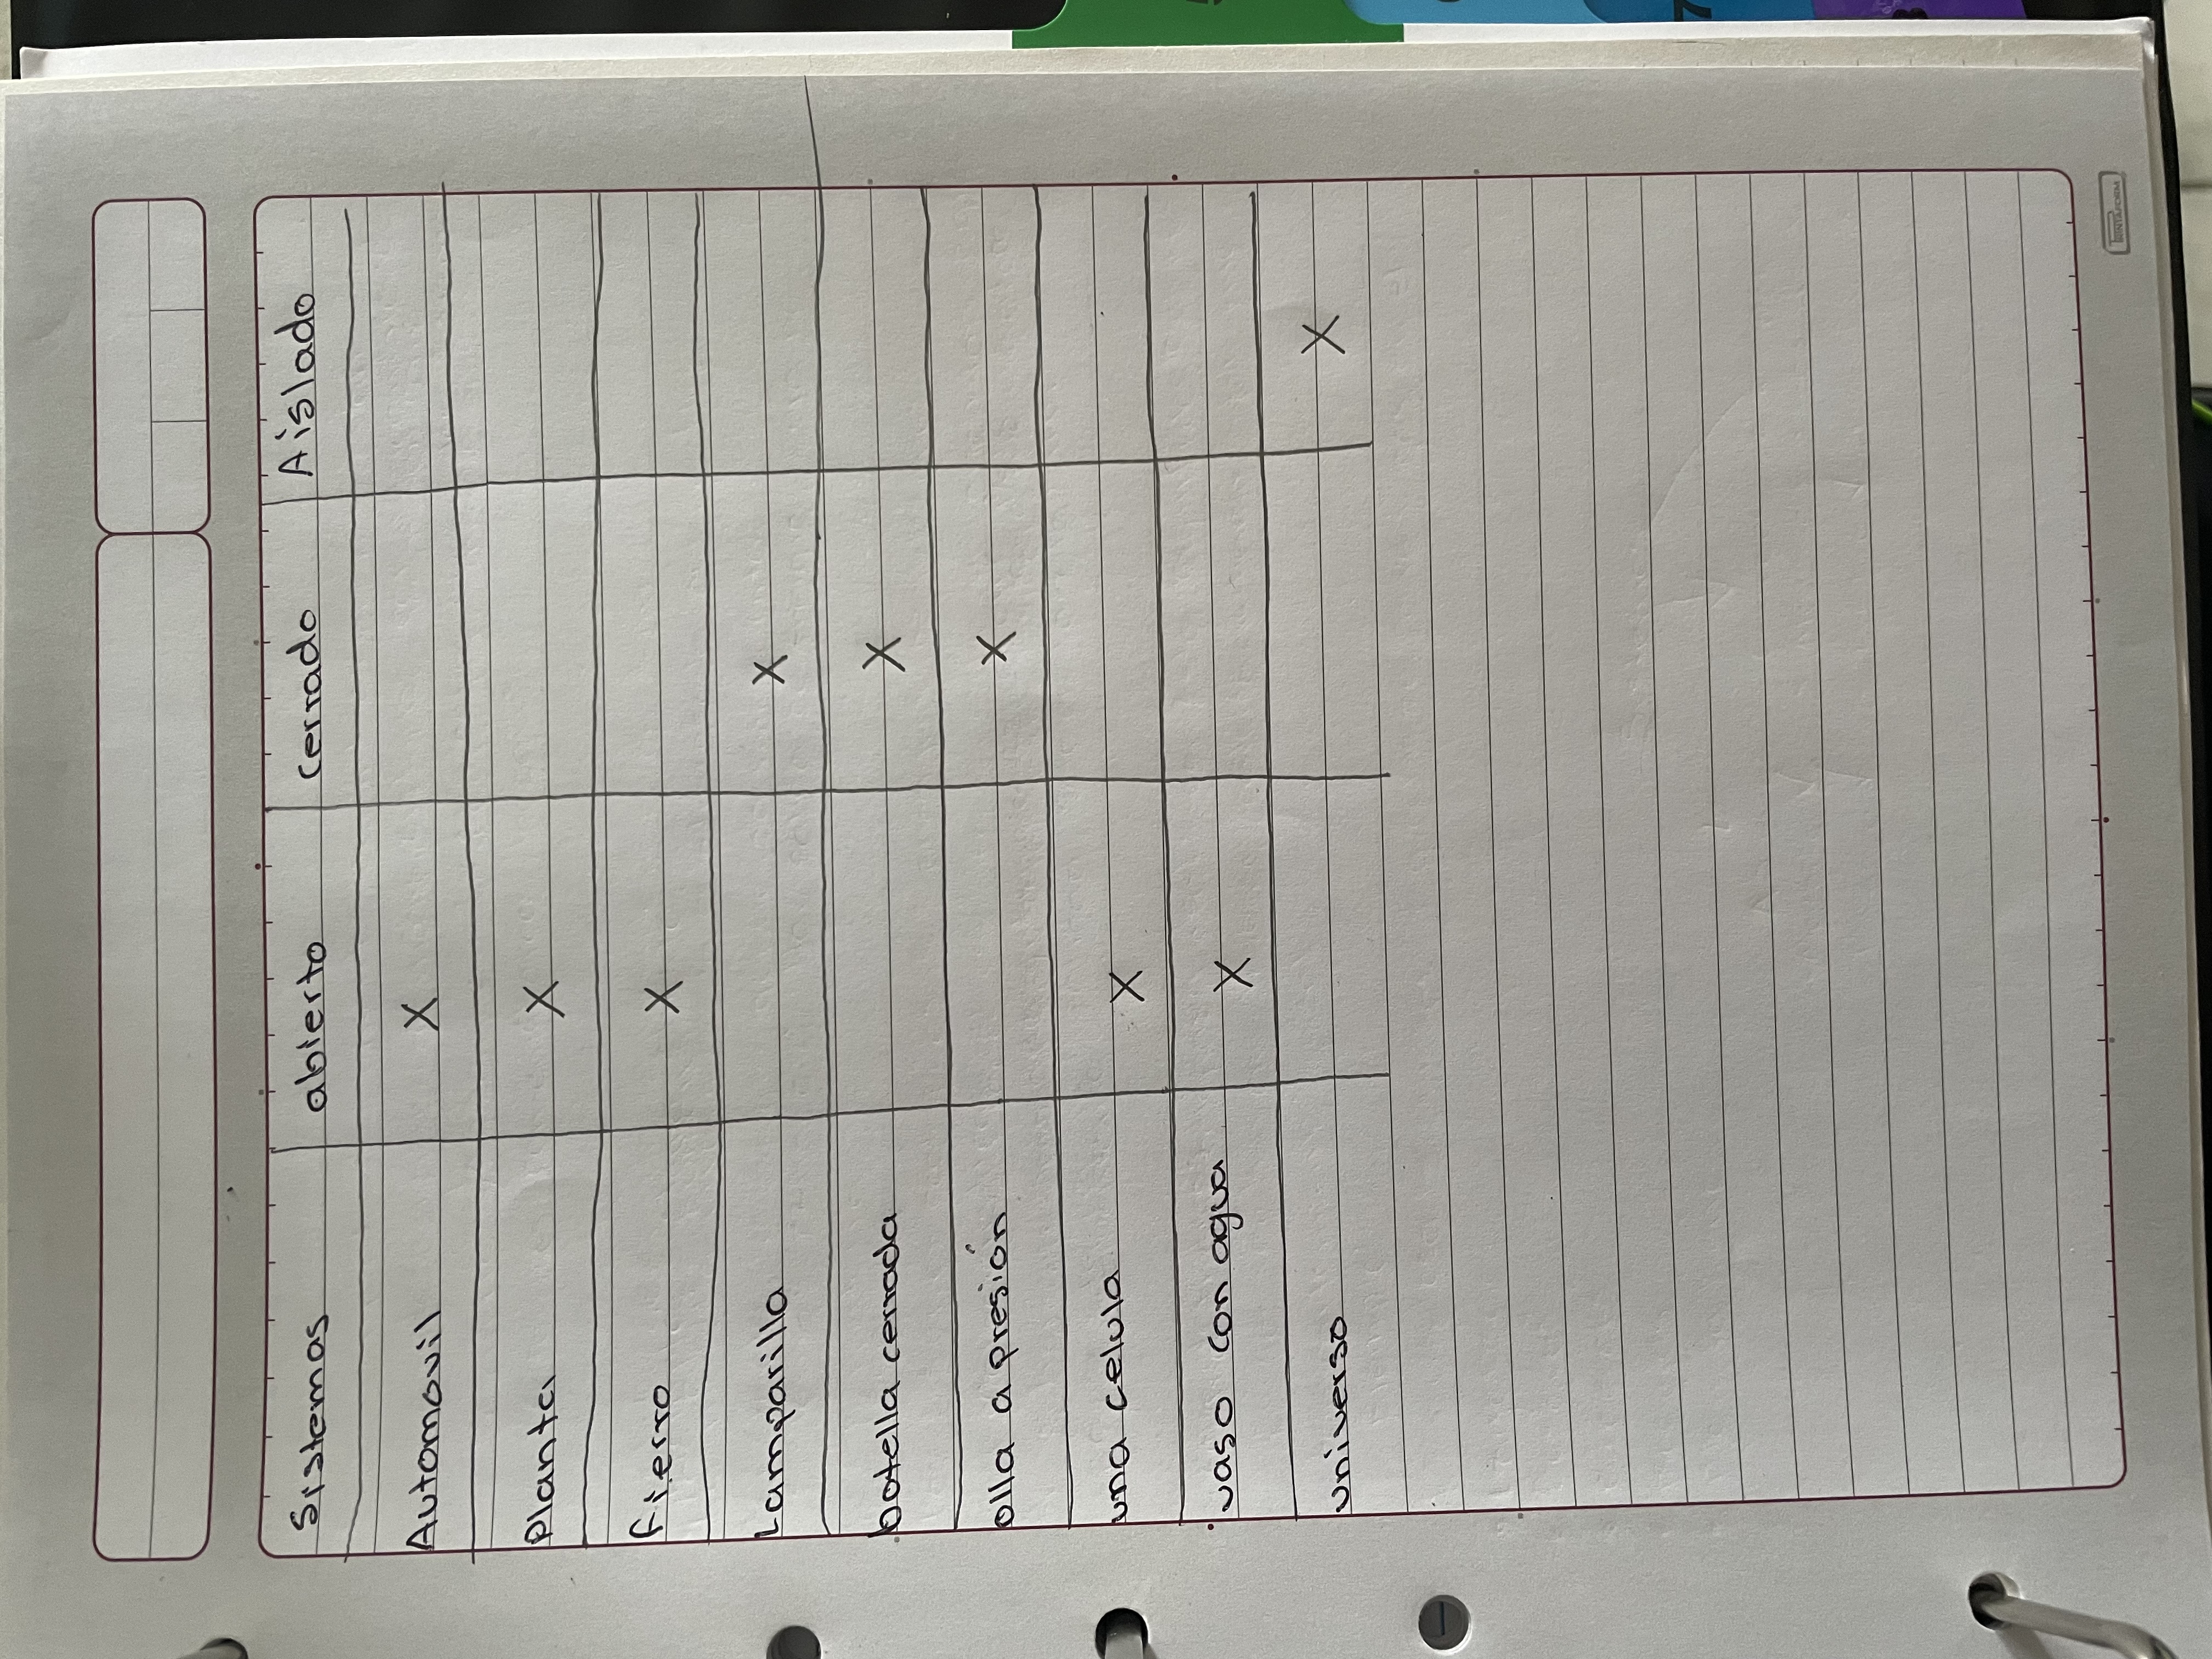 Sistemas abierto cerrado Aislado
Automovil X
Planta X
fierro X
Lamparilla X
botella cerrada X
olla a presión X
una celula X
vaso con agua X
universo X
PRINTAFORM
7
8